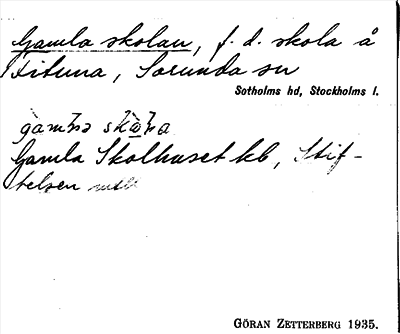 Gamla skolan, f. d. skola å
Fituna, Sorunda sn
Sotholms hd, Stockholms l.
Gamla Skolhuset kb, Stif-
telsen
GÖRAN ZETTERBERG 1935.